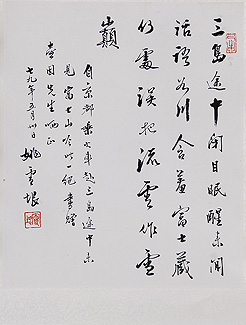 三島途中閉目眠醒來聞
話語為川含羞富士藏
何處誤把流雲作雪
巔
自京都乘火車赴三島途中未
見富士山吟一絕書贈
先生哂正
七九年五月卅日 姚雪垠